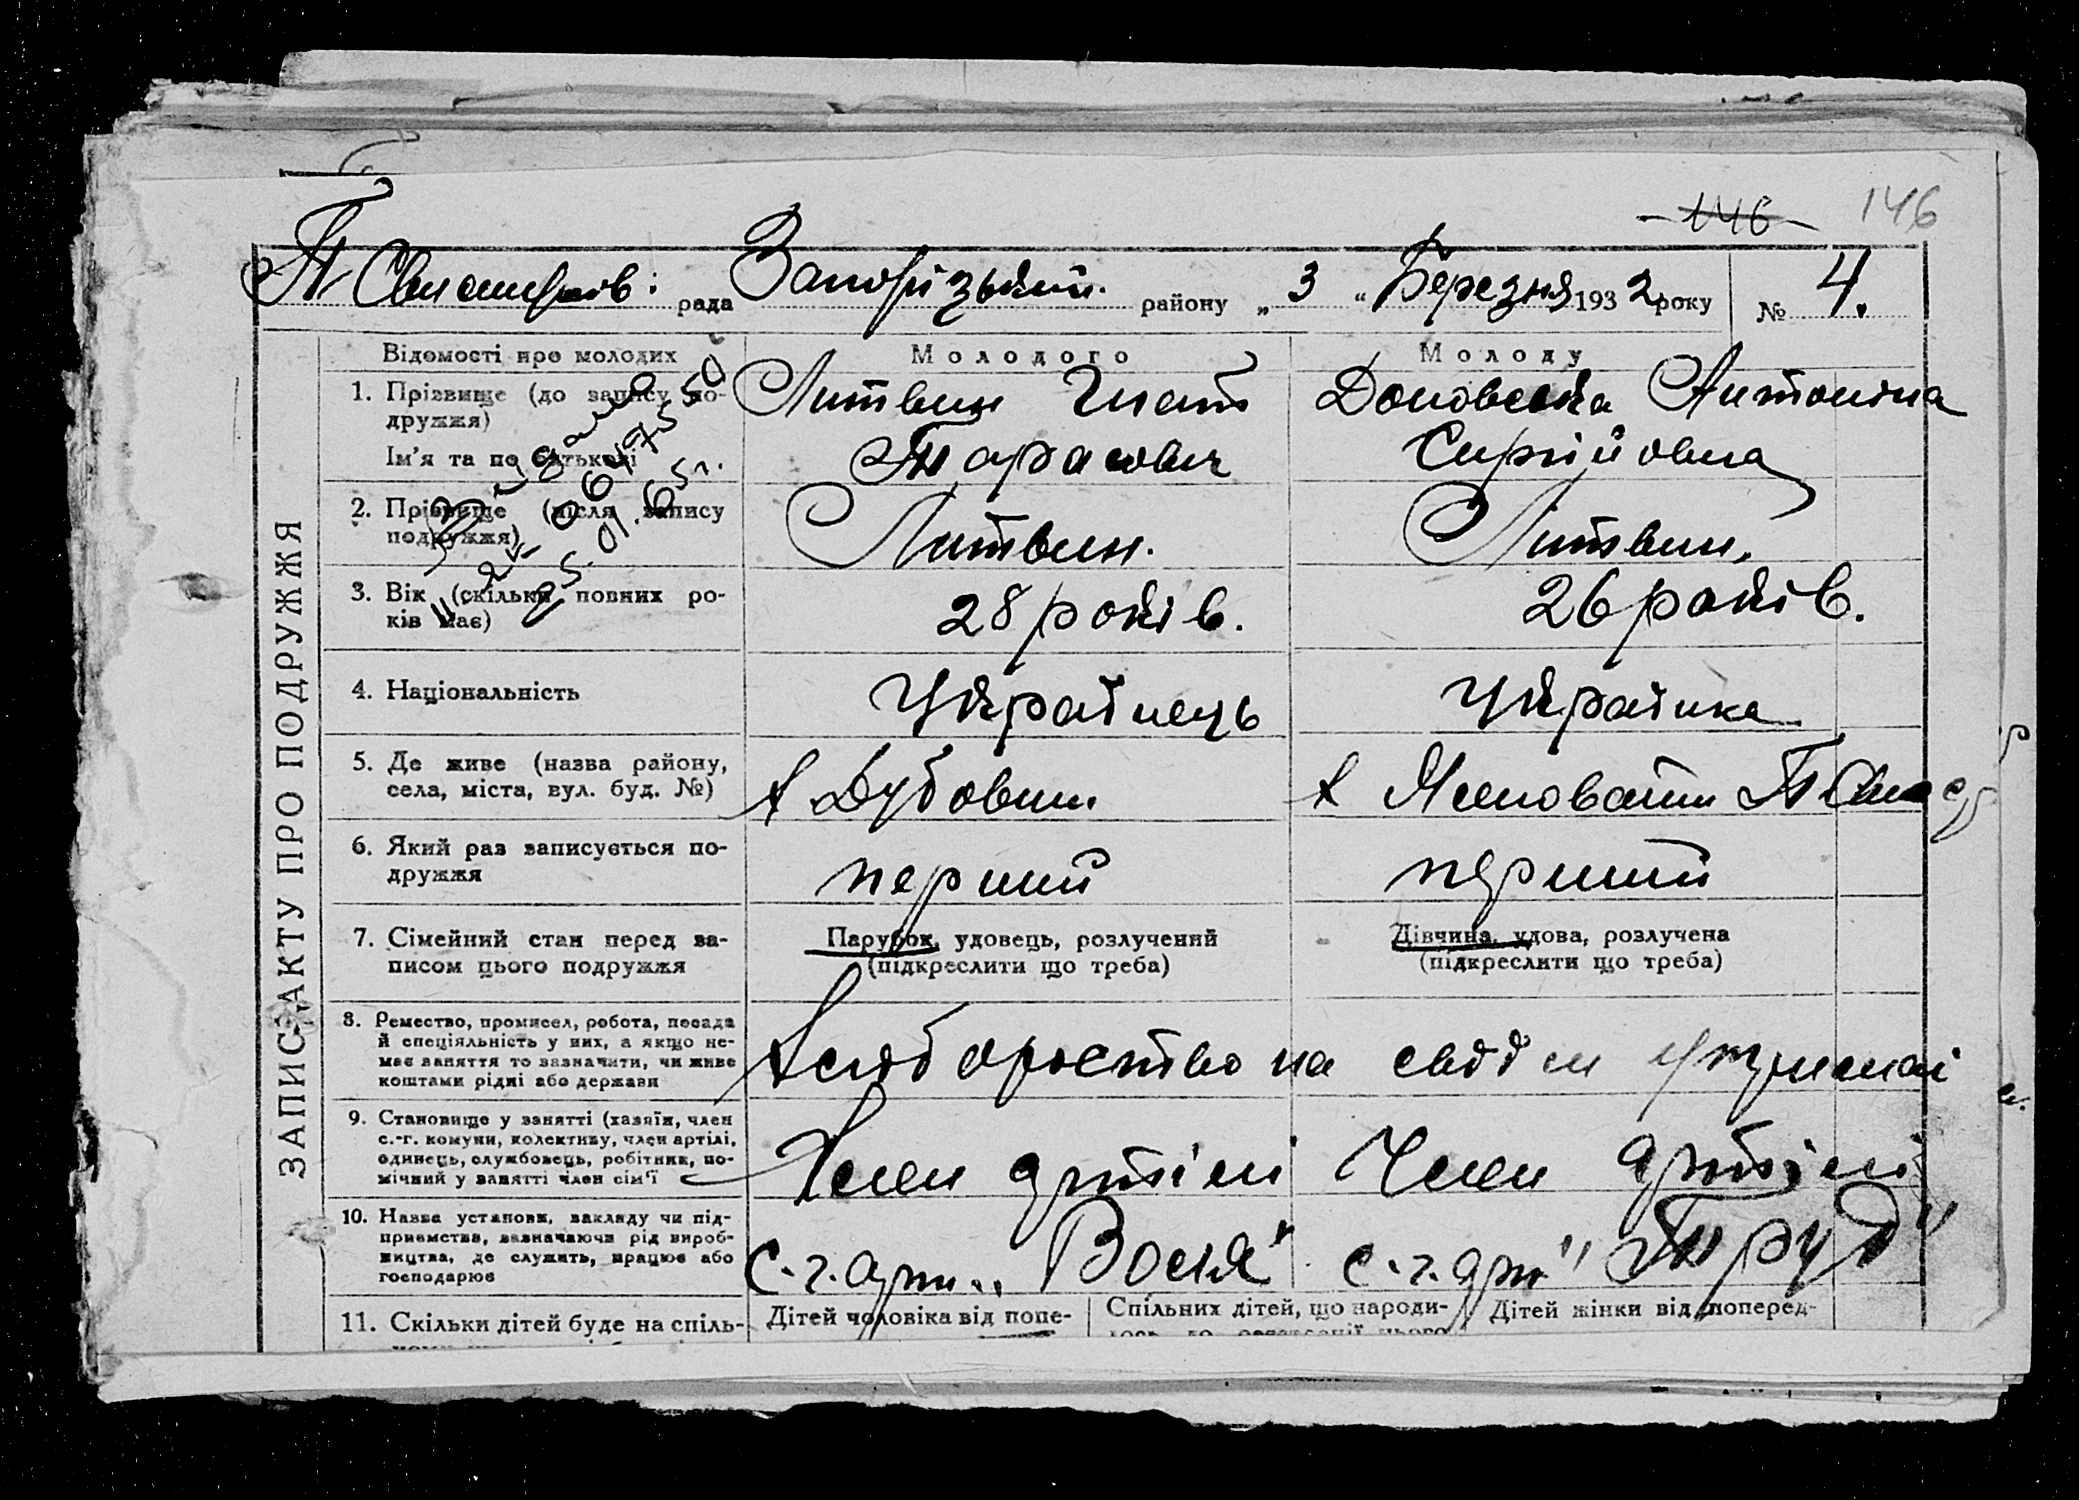 146 146
рада Запорізький району „ 3 “ Березня 1932 року № 4.
ЗАПИС АКТУ ПРО ПОДРУЖЖЯ
Відомості про молодих Молодого Молоду
1. Прізвище (до запису по- Литвин Гнат Антоніна
дружжя)
Ім'я та по батькові Тарасович Сиргійовна
2. Прізвище (після запису Литвин. Литвин.
подружжя)
25.01.65г.
3. Вік (скільки повних ро- 28 років. 26 років.
ків має)
4. Національність Українець Українка
5. Де живе (назва району, х Дубовий х
села, міста, вул. буд. №)
6. Який раз записується по- перший перший
дружжя
7. Сімейний стан перед за- Парубок, удовець, розлучений Дівчина, удова, розлучена
писом цього подружжя (підкреслити що треба) (підкреслити що треба)
8. Ремество, промисел, робота, посада
й спеціяльність у них, а якщо не-
має заняття то зазначити, чи живе
коштами рідні або держави
Хліборобство на
9. Становище у занятті (хазяїн, член
с.-г. комуни, колективу, член артілі,
одинець, службовець, робітник, по-
мічний у занятті член сім'ї
Член артілі Член артілі
10. Назва установи, закладу чи під-
приємства, зазначаючи рід вироб-
ництва, де служить, працює або
господарює
с.-г. арт. с.-г. арт " Труд"
11. Скільки дітей буде на спіль- Дітей чоловіка від попе- Спільних дітей, що народи- Дітей жінки від поперед-